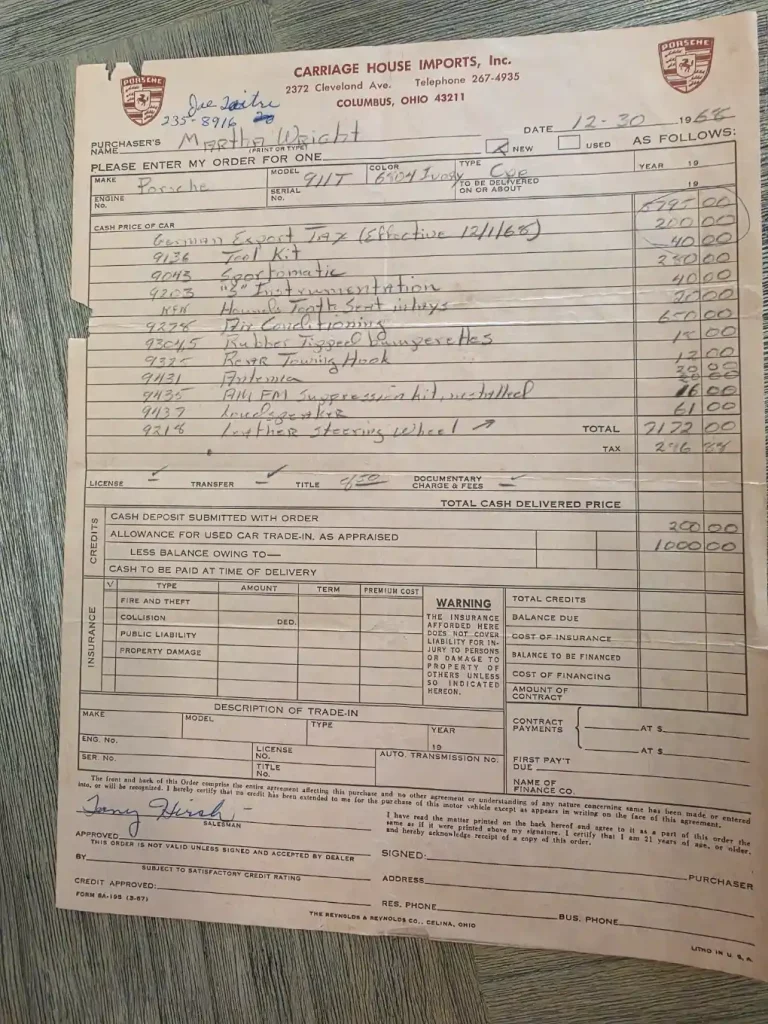 PORSCHE
PORSCHE
CARRIAGE HOUSE IMPORTS, Inc.
2372 Cleveland Ave. Telephone 267-4935
COLUMBUS, OHIO 43211
Joe
235-8916
DATE 12-30 1968
PURCHASER'S NAME Martha Wright
(PRINT OR TYPE)
NEW USED AS FOLLOWS:
PLEASE ENTER MY ORDER FOR ONE
MAKE Porsche MODEL 911T COLOR 6804 Ivory TYPE Cpe YEAR 19
ENGINE No. SERIAL No. TO BE DELIVERED ON OR ABOUT 19
CASH PRICE OF CAR 5795 00
German Export Tax (Effective 12/1/68) 200 00
9136 Tool Kit 40 00
9043 Sportomatic 280 00
9203 "S" Instrumentation 40 00
Hounds Tooth Seat inlays 20 00
9278 Air Conditioning 650 00
93045 Rubber Tipped bumperettes 15 00
9325 Rear Towing Hook 12 00
9431 Antenna
9435 AM/FM Suppression kit, installed 16 00
9437 Loudspeaker 61 00
9218 Leather Steering Wheel → TOTAL 7172 00
TAX 286 88
LICENSE TRANSFER TITLE DOCUMENTARY CHARGE & FEES
TOTAL CASH DELIVERED PRICE
CREDITS
CASH DEPOSIT SUBMITTED WITH ORDER 200 00
ALLOWANCE FOR USED CAR TRADE-IN, AS APPRAISED 1000 00
LESS BALANCE OWING TO—
CASH TO BE PAID AT TIME OF DELIVERY
INSURANCE
√ TYPE AMOUNT TERM PREMIUM COST
FIRE AND THEFT
COLLISION DED.
PUBLIC LIABILITY
PROPERTY DAMAGE
WARNING
THE INSURANCE
AFFORDED HERE
DOES NOT COVER
LIABILITY FOR IN-
JURY TO PERSONS
OR DAMAGE TO
PROPERTY OF
OTHERS UNLESS
SO INDICATED
HEREON.
TOTAL CREDITS
BALANCE DUE
COST OF INSURANCE
BALANCE TO BE FINANCED
COST OF FINANCING
AMOUNT OF CONTRACT
DESCRIPTION OF TRADE-IN
MAKE MODEL TYPE YEAR 19
ENG. No. LICENSE No. AUTO. TRANSMISSION No.
SER. No. TITLE No.
CONTRACT PAYMENTS AT $
AT $
FIRST PAY'T DUE
NAME OF FINANCE CO.
The front and back of this Order comprise the entire agreement affecting this purchase and no other agreement or understanding of any nature concerning same has been made or entered
into, or will be recognized. I hereby certify that no credit has been extended to me for the purchase of this motor vehicle except as appears in writing on the face of this agreement.
I have read the matter printed on the back hereof and agree to it as a part of this order the
same as if it were printed above my signature. I certify that I am 21 years of age, or older,
and hereby acknowledge receipt of a copy of this order.
Tony Hirsh
SALESMAN
APPROVED
THIS ORDER IS NOT VALID UNLESS SIGNED AND ACCEPTED BY DEALER
SIGNED:
PURCHASER
BY
SUBJECT TO SATISFACTORY CREDIT RATING
ADDRESS
CREDIT APPROVED:
RES. PHONE BUS. PHONE
FORM 8A-195 (3-67)
THE REYNOLDS & REYNOLDS CO., CELINA, OHIO
LITHO IN U. S. A.